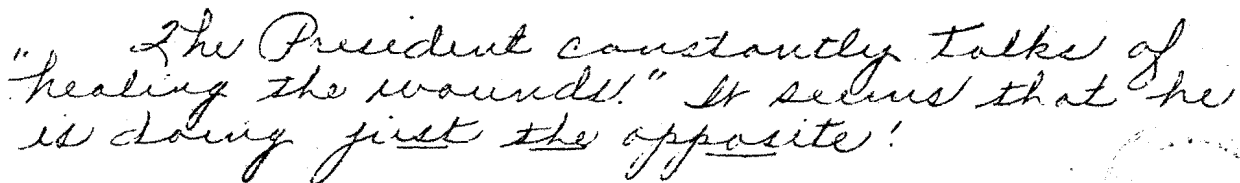 The President constantly talks of
"healing the wounds." It seems that he
is doing just the opposite!